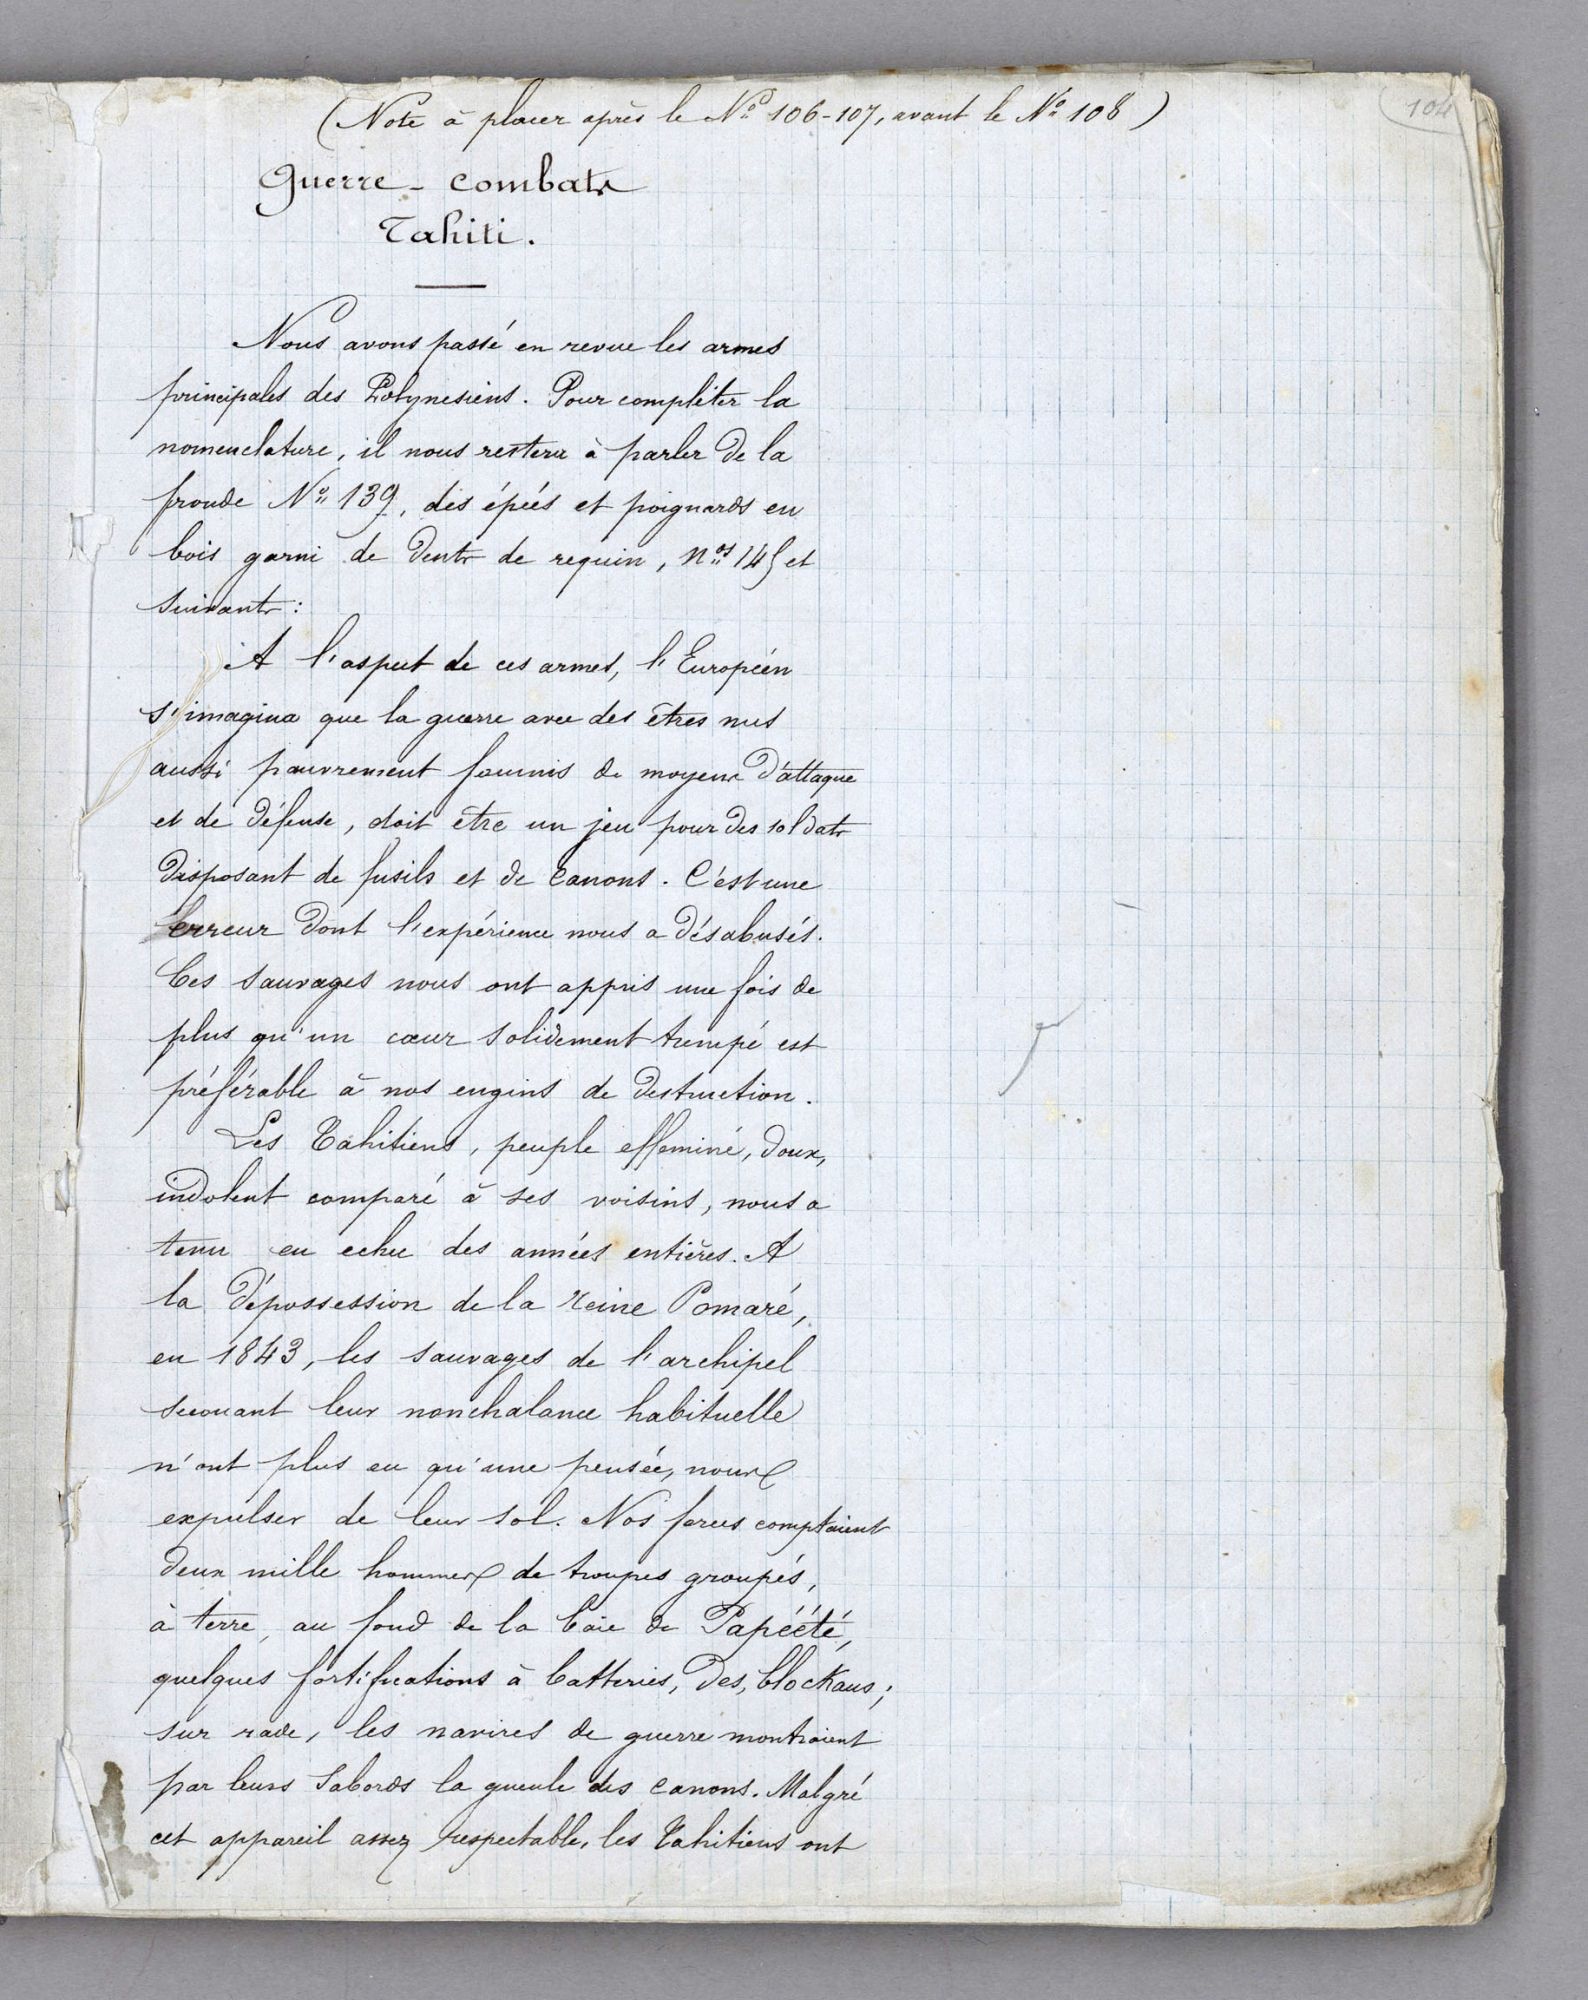 (Note à placer après le Nº 106-107, avant le Nº 108)
104
Guerre - combats
Tahiti.
Nous avons passé en revue les armes
principales des Polynesiens. Pour compléter la
nomenclature, il nous restera à parler de la
fronde Nº 139, des épées et poignards en
bois garni de dents de requin, nos 145 et
suivants :
A l'aspect de ces armes, l'Européen
s'imagina que la guerre avec des êtres nus
aussi pauvrement fournis de moyens d'attaque
et de défense, doit être un jeu pour des soldats
disposant de fusils et de canons. C'est une
erreur dont l'expérience nous a désabusés.
Ces sauvages nous ont appris une fois de
plus qu'un cœur solidement trempé est
préférable à nos engins de destruction.
Les Tahitiens, peuple efféminé, doux,
indolent comparé à ses voisins, nous a
tenu en echec des années entières. A
la dépossession de la reine Pomaré,
en 1843, les sauvages de l'archipel
secouant leur nonchalance habituelle
n'ont plus eu qu'une pensée, nous
expulser de leur sol. Nos forces comptaient
deux mille hommes de troupes groupés,
à terre, au fond de la baie de Papéété,
quelques fortifications à batteries, des, blockaus ;
sur rade, les navires de guerre montraient
par leurs sabords la gueule des canons. Malgré
cet appareil assez respectable, les Tahitiens ont